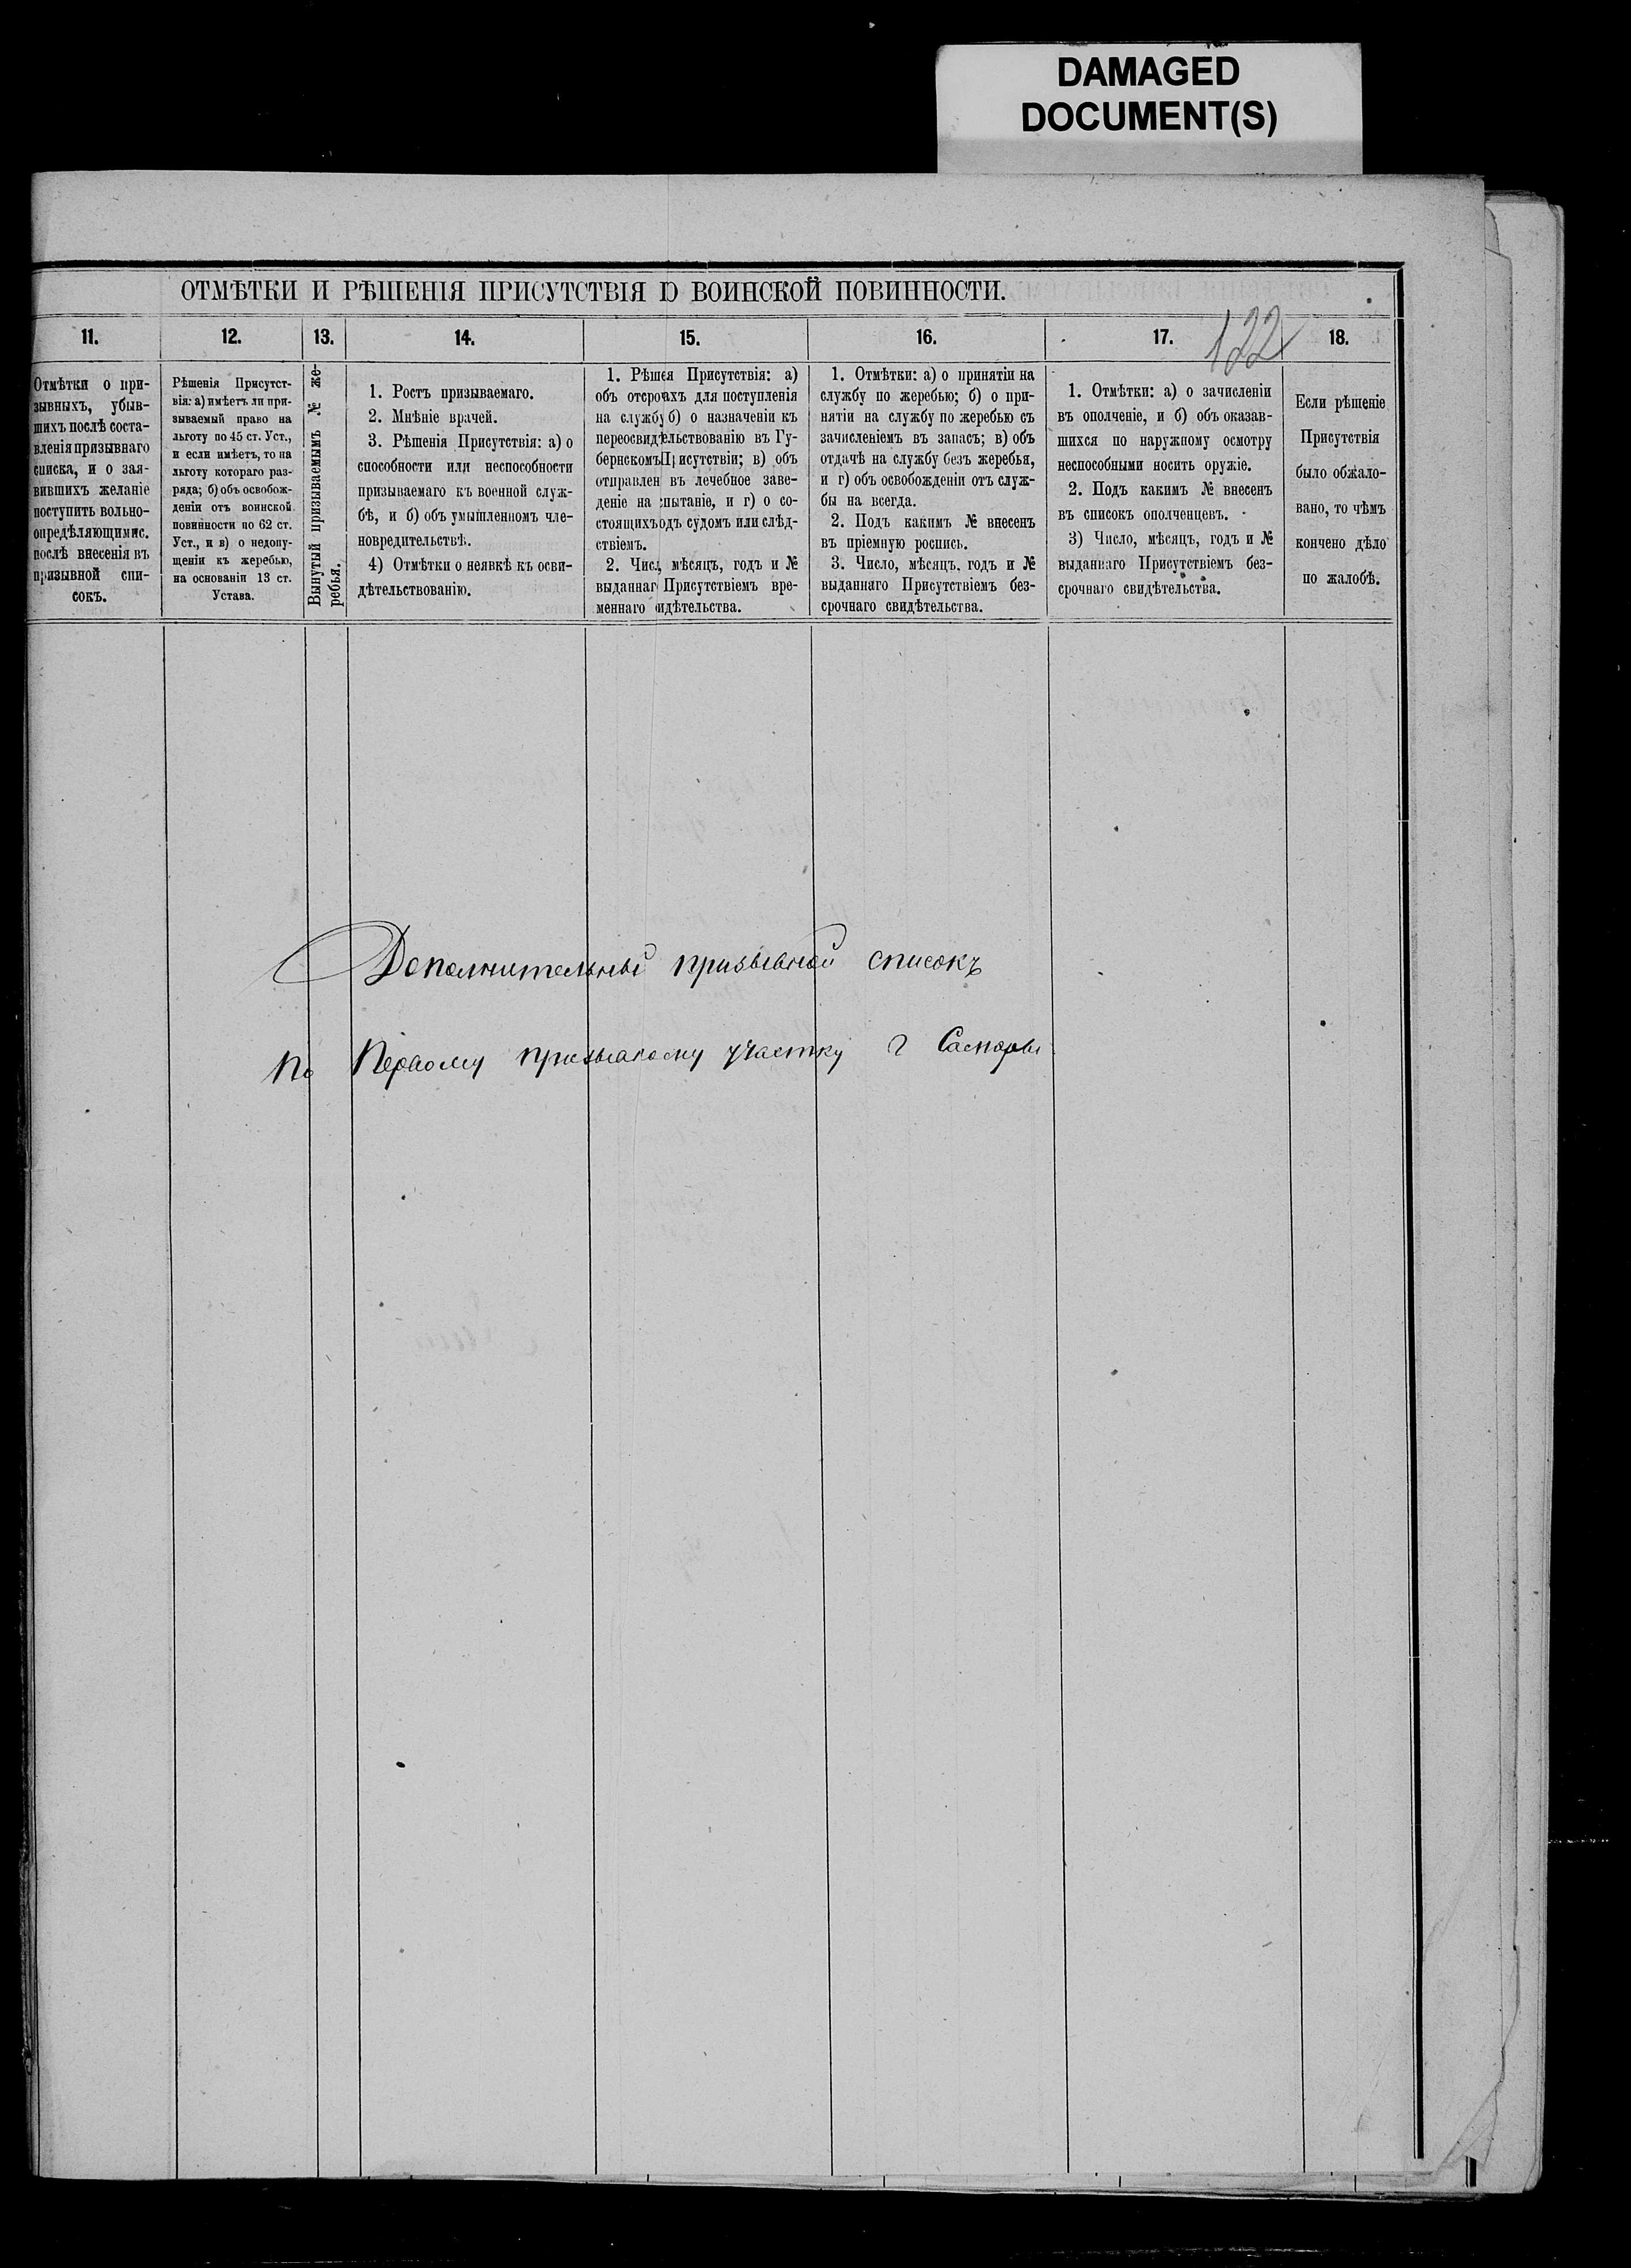 DAMAGED
DOCUMENT(S)
ОТМѢТКИ И РѢШЕНІЯ ПРИСУТСТВІЯ ВОИНСКОЙ ПОВИННОСТИ.
122
11.
Отмѣтки о при-
зывныхъ, убыв-
шихъ послѣ соста-
вленія призывнаго
списка, и о зая-
вившихъ желаніе
поступить вольно-
опредѣляющимис.
послѣ внесенія въ
призывной спи-
сокъ.
12.
Рѣшенія Присутст-
вія: а) имѣетъ ли при-
зываемый право на
льготу по 45 ст. Уст.,
и если имѣетъ, то на
льготу котораго раз-
ряда; б) объ освобож-
деніи отъ воинской
повинности по 62 ст.
Уст., и в) о недопу-
щеніи къ жеребью,
на основаніи 13 ст.
Устава.
13.
Вынутый призываемымъ № же-
ребья.
14.
1. Ростъ призываемаго.
2. Мнѣніе врачей.
3. Рѣшенія Присутствія: а) о
способности или неспособности
призываемаго къ военной служ-
бѣ, и б) объ умышленномъ чле-
новредительствѣ.
4) Отмѣтки о неявкѣ къ осви-
дѣтельствованію.
15.
1. Рѣшея Присутствія: а)
объ отсроахъ для поступленія
на службу б) о назначеніи къ
переосвидѣльствованію въ Гу-
бернскомъ Присутствіи; в) объ
отправлен въ лечебное заве-
деніе на пытаніе, и г) о со-
стоящихъ одъ судомъ или слѣд-
ствіемъ.
2. Числ, мѣсяцъ, годъ и №
выданнаг Присутствіемъ вре-
меннаго идѣтельства.
16.
1. Отмѣтки: а) о принятіи на
службу по жеребью; б) о при-
нятіи на службу по жеребью съ
зачисленіемъ въ запасъ; в) объ
отдачѣ на службу безъ жеребья,
и г) объ освобожденіи отъ служ-
бы на всегда.
2. Подъ какимъ № внесенъ
въ пріемную роспись.
3. Число, мѣсяцъ, годъ и №
выданнаго Присутствіемъ без-
срочнаго свидѣтельства.
17.
1. Отмѣтки: а) о зачисленіи
въ ополченіе, и б) объ оказав-
шихся по наружному осмотру
неспособными носить оружіе.
2. Подъ какимъ № внесенъ
въ списокъ ополченцевъ.
3) Число, мѣсяцъ, годъ и №
выданнаго Присутствіемъ без-
срочнаго свидѣтельства.
18.
Если рѣшеніе
Присутствія
было обжало-
вано, то чѣмъ
кончено дѣло
по жалобѣ.
Дополнительный призывной списокъ
По Первому призывному участку г Самары